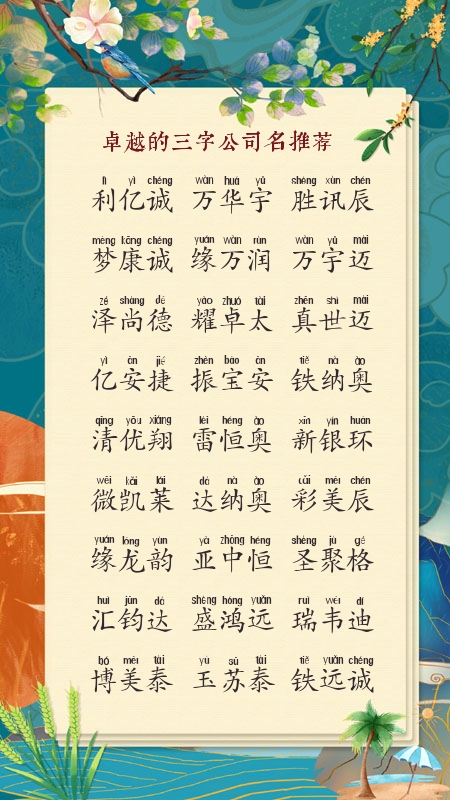 卓越的三字公司名推荐
lì yì chéng wàn huá yǔ shèng xùn chén
利亿诚 万华宇 胜讯辰
mèng kāng chéng yuán wàn rùn wàn yǔ mài
梦康诚 缘万润 万宇迈
zé shàng dé yào zhuó tài zhēn shì mài
泽尚德 耀卓太 真世迈
yì ān jié zhèn bǎo ān tiě nà ào
亿安捷 振宝安 铁纳奥
qīng yōu xiáng léi héng ào xīn yín huán
清优翔 雷恒奥 新银环
wēi kǎi lái dá nà ào cǎi měi chén
微凯莱 达纳奥 彩美辰
yuán lóng yùn yà zhōng héng shèng jù gé
缘龙韵 亚中恒 圣聚格
huì jūn dá shèng hóng yuǎn ruì wéi dí
汇钧达 盛鸿远 瑞韦迪
bó měi tài yù sū tài tiě yuǎn chéng
博美泰 玉苏泰 铁远诚